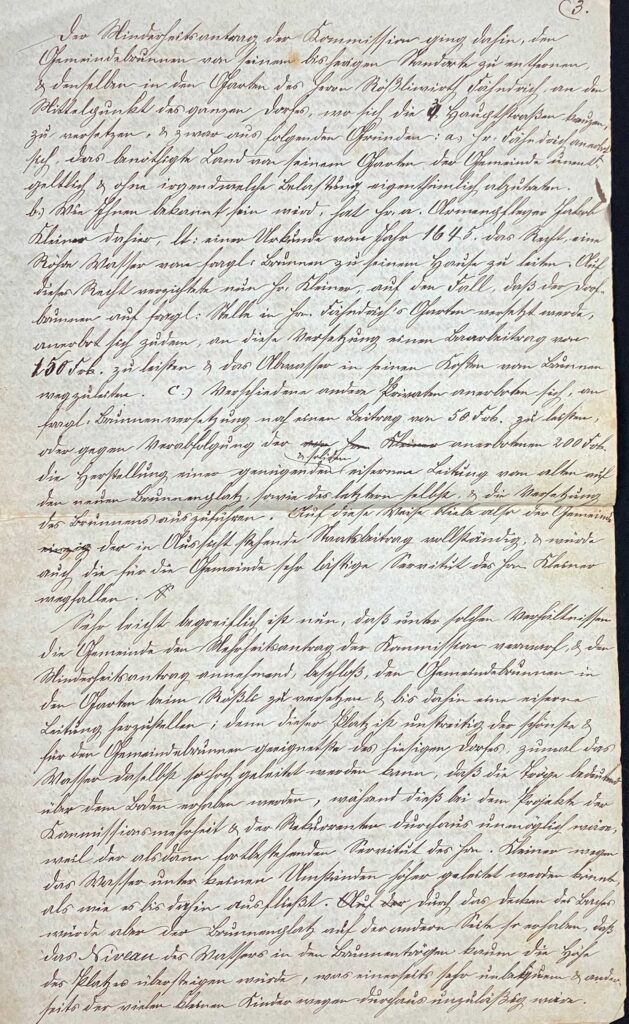 3.
Der Minderheitsantrag der Kommission ging dahin, den
Gemeindebrunnen von seinem bisherigen Standorte zu entfernen,
& denselben in den Garten des Herrn Rößliwirt Fähndrich, an den
Mittelpunkt des ganzen Dorfes, wo sich die 4 Hauptstraßen kreuzen,
zu versetzen, & zwar aus folgenden Gründen: a, Hr. Fähndrich anerbot
sich, das benöthigte Land von seinem Garten der Gemeinde unent-
geltlich & ohne irgendwelche Belastung eigenthümlich abzutreten.
b, Wie Ihnen bekannt sein wird, hat Hr. a. Armenpfleger Jakob
Kleiner dahier, lt: einer Urkunde vom Jahr 1645. das Recht, eine
Röhre Wasser vom fragl: Brunnen zu seinem Hause zu leiten. Auf
dieses Recht verzichtete nun Hr. Kleiner, auf den Fall, daß der Dorf-
brunnen auf fragl: Stelle in Hrn. Fähndrich's Garten versetzt werde,
anerbot sich zudem, an diese Versetzung einen Baarbeitrag von
150 Frk. zu leisten & das Abwasser in seinen Kosten vom Brunnen
wegzuleiten. c.) Verschiedene andere Privaten anerboten sich, an
fragl. Brunnenversetzung noch einen Beitrag von 50 Frk. zu leisten,
oder gegen Verabfolgung der von Hrn Kleiner anerbotenen 200 Frk.
die Herstellung einer genügenden & soliden eisernen Leitung vom alten auf
den neuen Brunnenplatz, sowie des letztern selbst, & die Versetzung
des Brunnens auszuführen. Auf diese Weise bliebe also der Gemeinde
einzig der in Aussicht stehende Staatsbeitrag vollständig, & würde
auch die für die Gemeinde sehr lästige Servitut des Hrn. Kleiner
wegfallen.
Sehr leicht begreiflich ist nun, daß unter solchen Verhältnissen
die Gemeinde den Mehrheitsantrag der Kommission verwarf, & den
Minderheitsantrag annehmend, beschloß, den Gemeindebrunnen in
den Garten beim Rößli zu versetzen & bis dahin eine eiserne
Leitung herzustellen; denn dieser Platz ist unstreitig der schönste &
für den Gemeindebrunnen geeignetste des hiesigen Dorfes, zumal das
Wasser daselbst so hoch geleitet werden kann, daß die Tröge bedeutend
über dem Boden erhaben werden, während dieß bei dem Projekte der
Kommissionsmehrheit & der Rekurrenten durchaus unmöglich wäre,
weil der alsdann fortbestehenden Servitut des Hrn. Kleiner wegen
das Wasser unter keinen Umständen höher geleitet werden könnte,
als wie es bis dahin ausfließt. Auf der durch das decken des Baches
würde aber der Brunnenplatz auf der andern Seite so erhaben, daß
das Niveau des Wassers in den Brunnentrögen kaum die Höhe
des Platzes übersteigen würde, was einerseits sehr unbequem & ander-
seits der vielen kleinen Kinder wegen durchaus unzuläßig wäre.